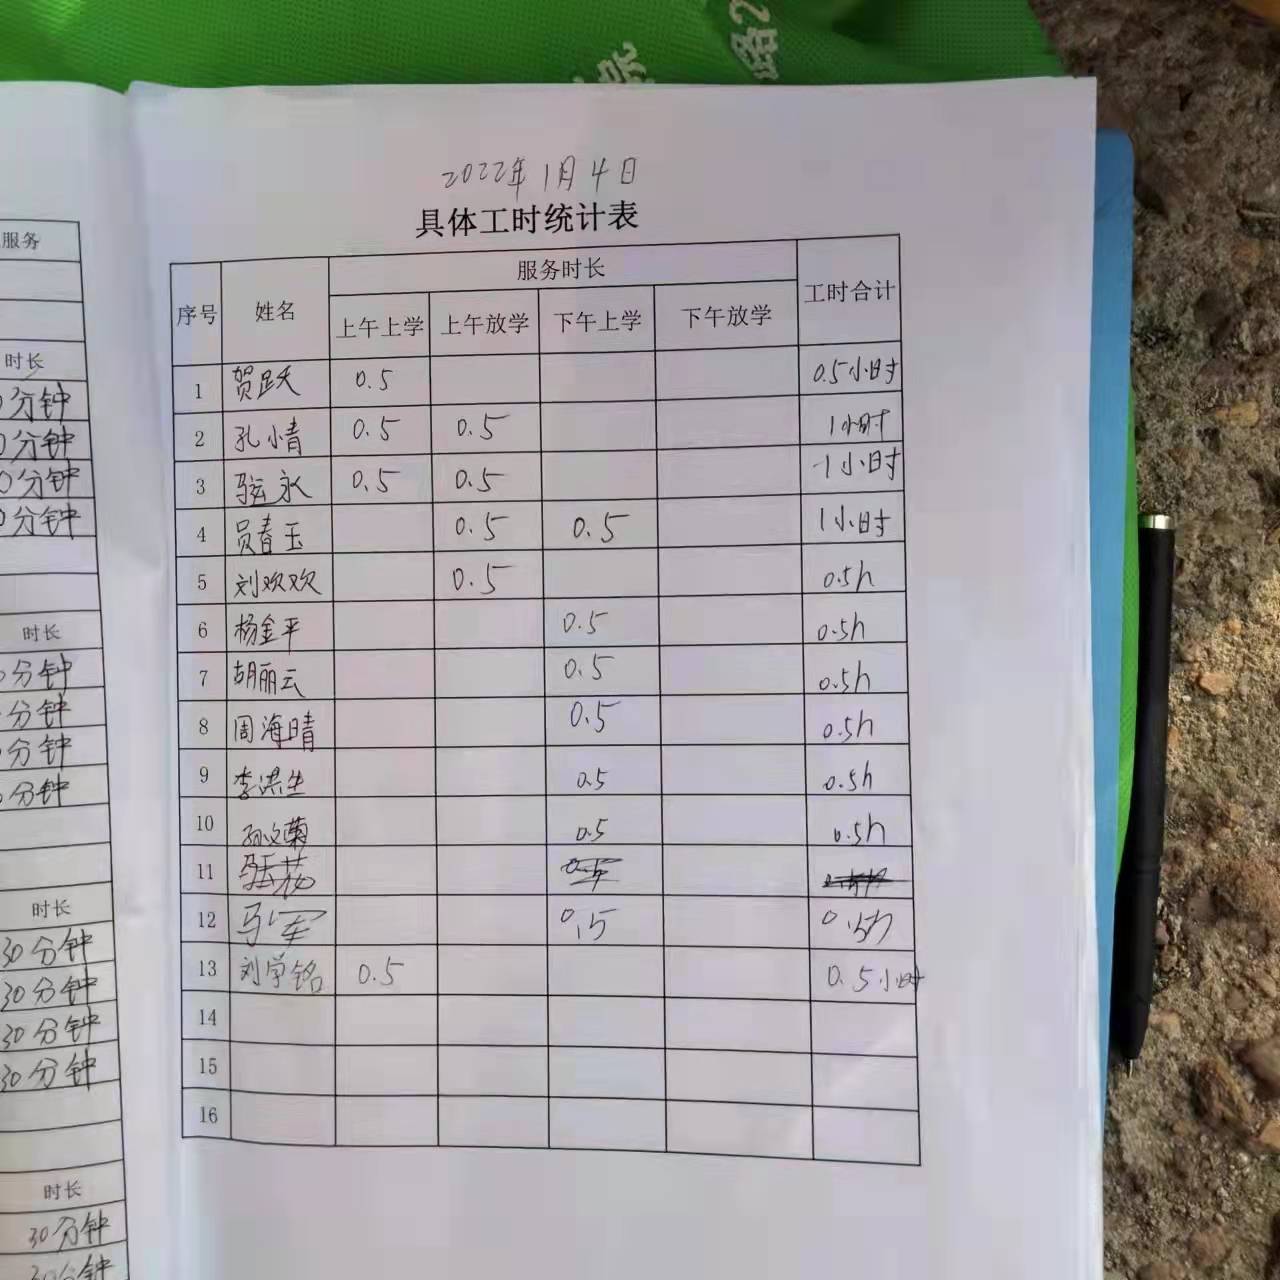 路2
2022年1月4日
具体工时统计表
序号 姓名 服务时长 工时合计
上午上学 上午放学 下午上学 下午放学
1 贺跃 0.5 0.5小时
2 孔小青 0.5 0.5 1小时
3 骇永 0.5 0.5 1小时
4 员春玉 0.5 0.5 1小时
5 刘欢欢 0.5 0.5h
6 杨金平 0.5 0.5h
7 胡丽云 0.5 0.5h
8 周海晴 0.5 0.5h
9 0.5 0.5h
10 孙文菊 0.5 0.5h
11
12 马军 0.5 0.5h
13 刘学铭 0.5 0.5小时
14
15
16
服务
时长
0分钟
0分钟
0分钟
0分钟
时长
分钟
分钟
分钟
分钟
时长
30分钟
30分钟
30分钟
30分钟
时长
30分钟
30分钟